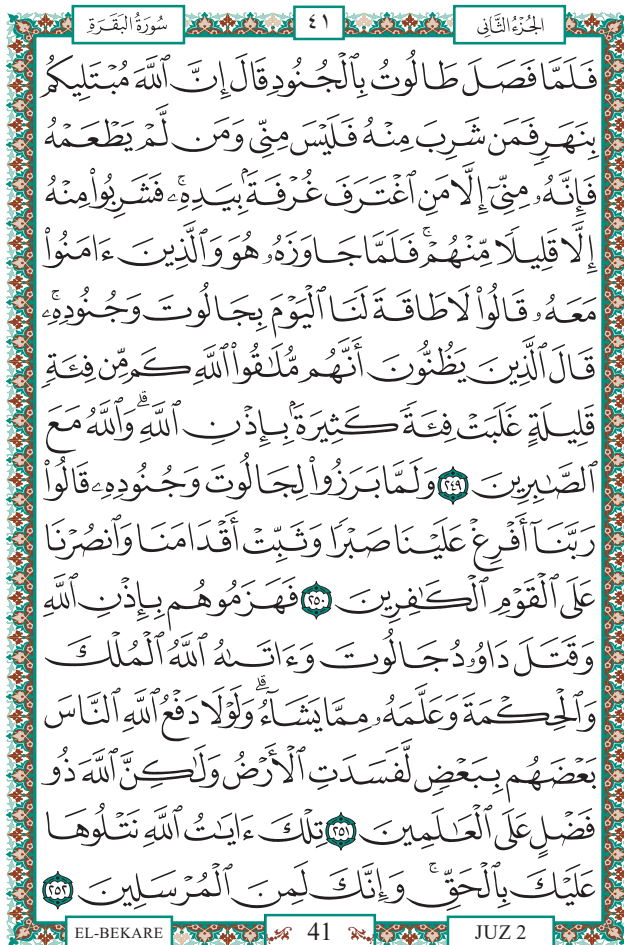 سُورَةُ الْبَقَرَةِ ٤١ الجُزْءُ الثَّانِي
فَلَمَّا فَصَلَ طَالُوتُ بِٱلْجُنُودِ قَالَ إِنَّ ٱللَّهَ مُبْتَلِيكُم
بِنَهَرٍ فَمَن شَرِبَ مِنْهُ فَلَيْسَ مِنِّى وَمَن لَّمْ يَطْعَمْهُ
فَإِنَّهُۥ مِنِّىٓ إِلَّا مَنِ ٱغْتَرَفَ غُرْفَةًۢ بِيَدِهِۦۚ فَشَرِبُوا۟ مِنْهُ
إِلَّا قَلِيلًا مِّنْهُمْۚ فَلَمَّا جَاوَزَهُۥ هُوَ وَٱلَّذِينَ ءَامَنُوا۟
مَعَهُۥ قَالُوا۟ لَا طَاقَةَ لَنَا ٱلْيَوْمَ بِجَالُوتَ وَجُنُودِهِۦۚ
قَالَ ٱلَّذِينَ يَظُنُّونَ أَنَّهُم مُّلَـٰقُوا۟ ٱللَّهِ كَم مِّن فِئَةٍ
قَلِيلَةٍ غَلَبَتْ فِئَةً كَثِيرَةًۢ بِإِذْنِ ٱللَّهِۗ وَٱللَّهُ مَعَ
ٱلصَّـٰبِرِينَ ٢٤٩ وَلَمَّا بَرَزُوا۟ لِجَالُوتَ وَجُنُودِهِۦ قَالُوا۟
رَبَّنَآ أَفْرِغْ عَلَيْنَا صَبْرًا وَثَبِّتْ أَقْدَامَنَا وَٱنصُرْنَا
عَلَى ٱلْقَوْمِ ٱلْكَـٰفِرِينَ ٢٥٠ فَهَزَمُوهُم بِإِذْنِ ٱللَّهِ
وَقَتَلَ دَاوُۥدُ جَالُوتَ وَءَاتَىٰهُ ٱللَّهُ ٱلْمُلْكَ
وَٱلْحِكْمَةَ وَعَلَّمَهُۥ مِمَّا يَشَآءُۗ وَلَوْلَا دَفْعُ ٱللَّهِ ٱلنَّاسَ
بَعْضَهُم بِبَعْضٍ لَّفَسَدَتِ ٱلْأَرْضُ وَلَـٰكِنَّ ٱللَّهَ ذُو
فَضْلٍ عَلَى ٱلْعَـٰلَمِينَ ٢٥١ تِلْكَ ءَايَـٰتُ ٱللَّهِ نَتْلُوهَا
عَلَيْكَ بِٱلْحَقِّۚ وَإِنَّكَ لَمِنَ ٱلْمُرْسَلِينَ ٢٥٢
EL-BEKARE 41 JUZ 2